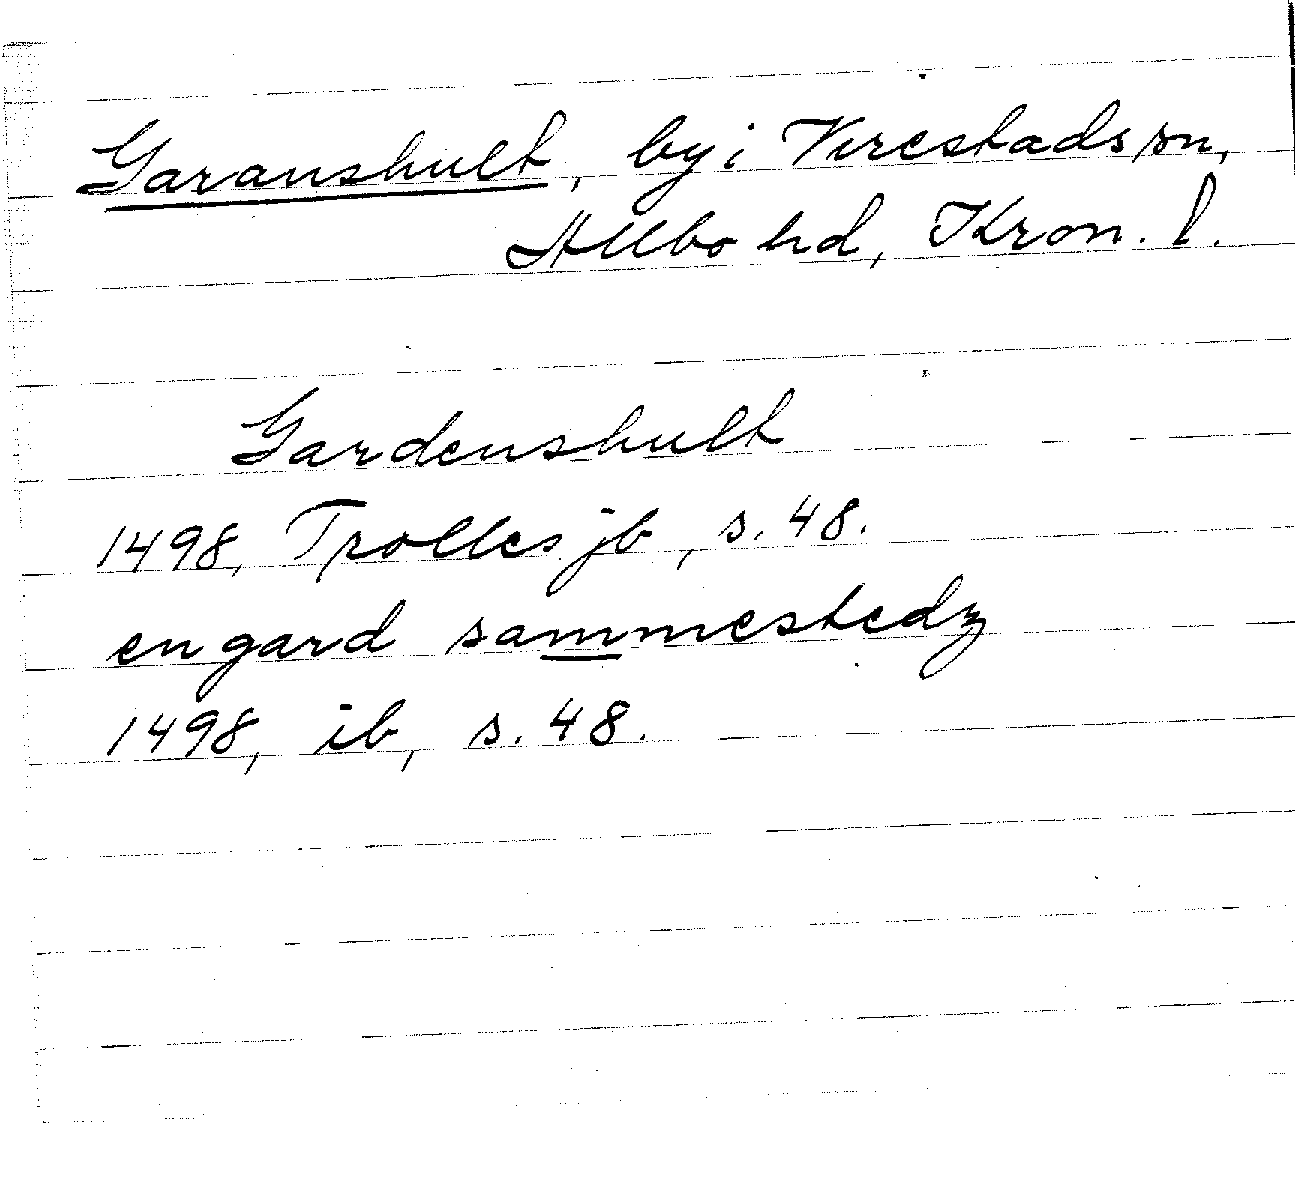 Garanshult, by i Virestads sn,
Allbo hd, Kron. l.
Gardenshult
1498, Trolles jb, s. 48.
en gard sammestedz
1498, ib, s. 48.